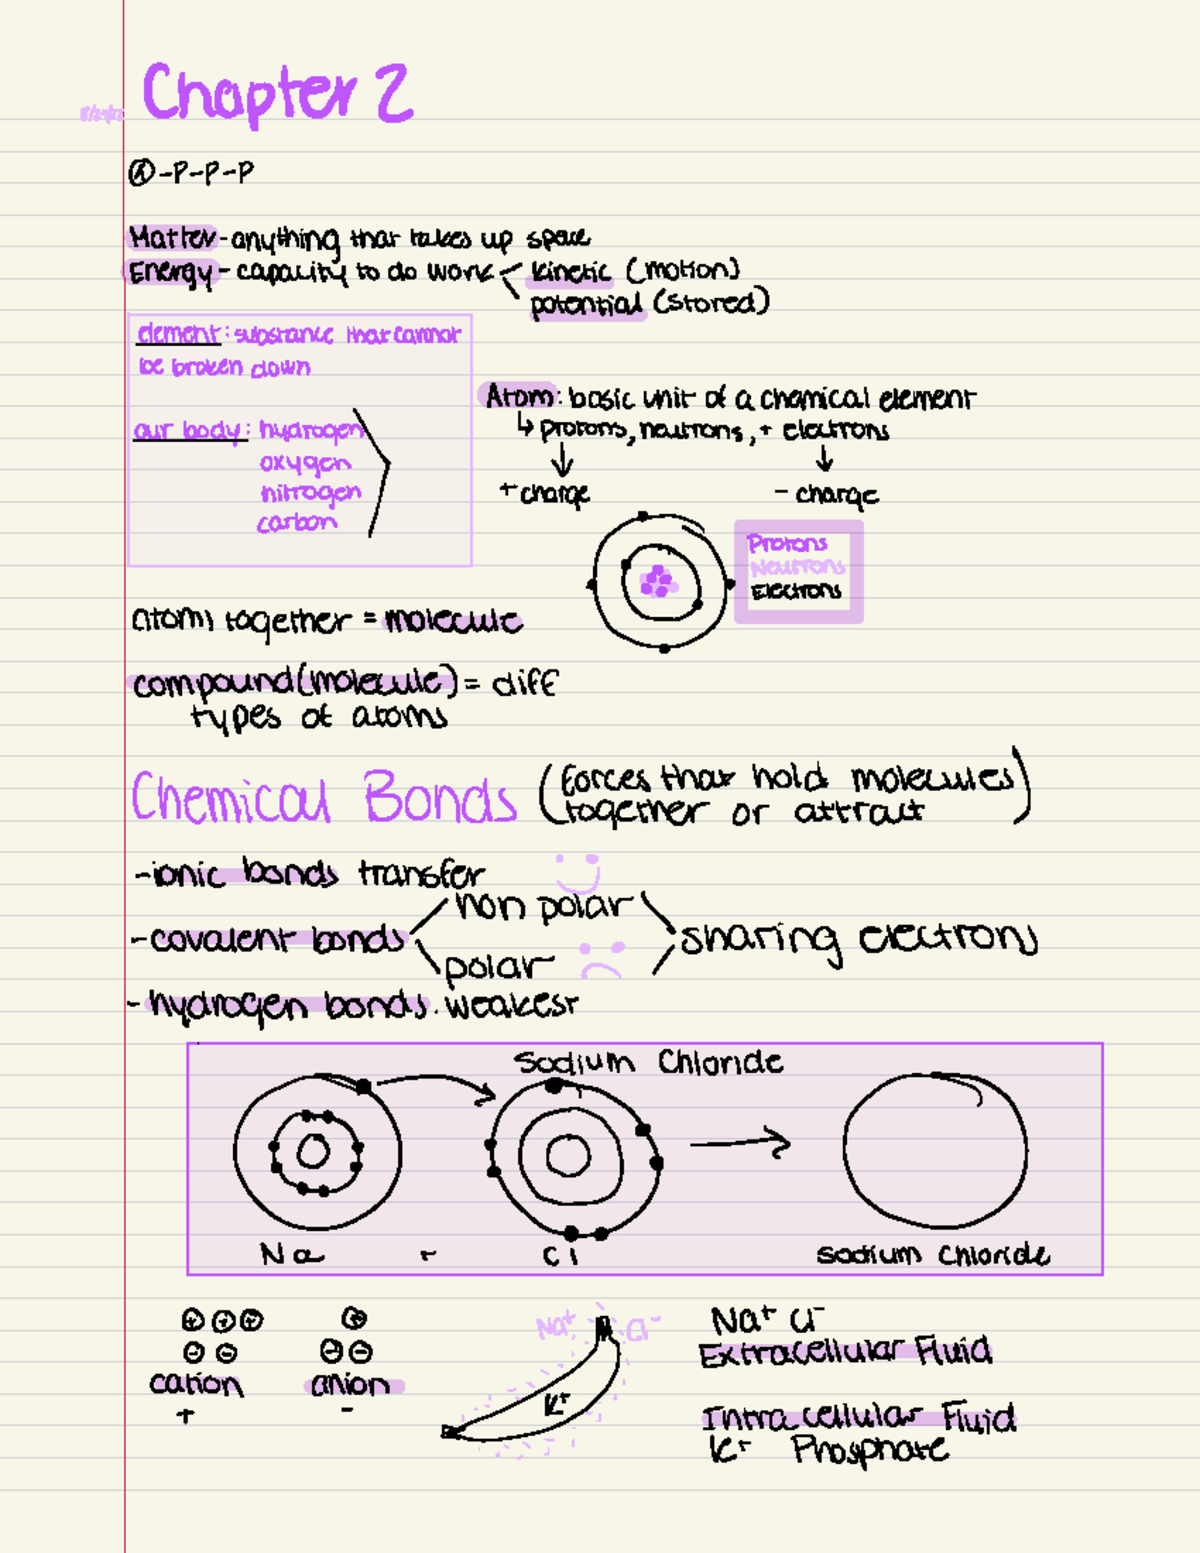 Chapter 2
Ⓐ-P-P-P
Matter - anything that takes up space
Energy - capacity to do work < kinetic (motion)
potential (stored)
element: substance that cannot
be broken down
our body: hydrogen
oxygen
nitrogen
carbon
Atom: basic unit of a chemical element
↳ protons, neutrons, + electrons
+ charge
- charge
Protons
Neutrons
Electrons
atoms together = molecule
compound (molecule) = diff
types of atoms
Chemical Bonds (forces that hold molecules
together or attract)
- ionic bonds transfer
non polar
- covalent bonds
sharing electrons
polar
- hydrogen bonds. weakest
Sodium Chloride
Na + Cl
sodium chloride
+ + + +
- - - -
cation anion
+ -
Na⁺ Cl⁻
K⁺
Na⁺ Cl⁻
Extracellular Fluid
Intracellular Fluid
K⁺ Phosphate